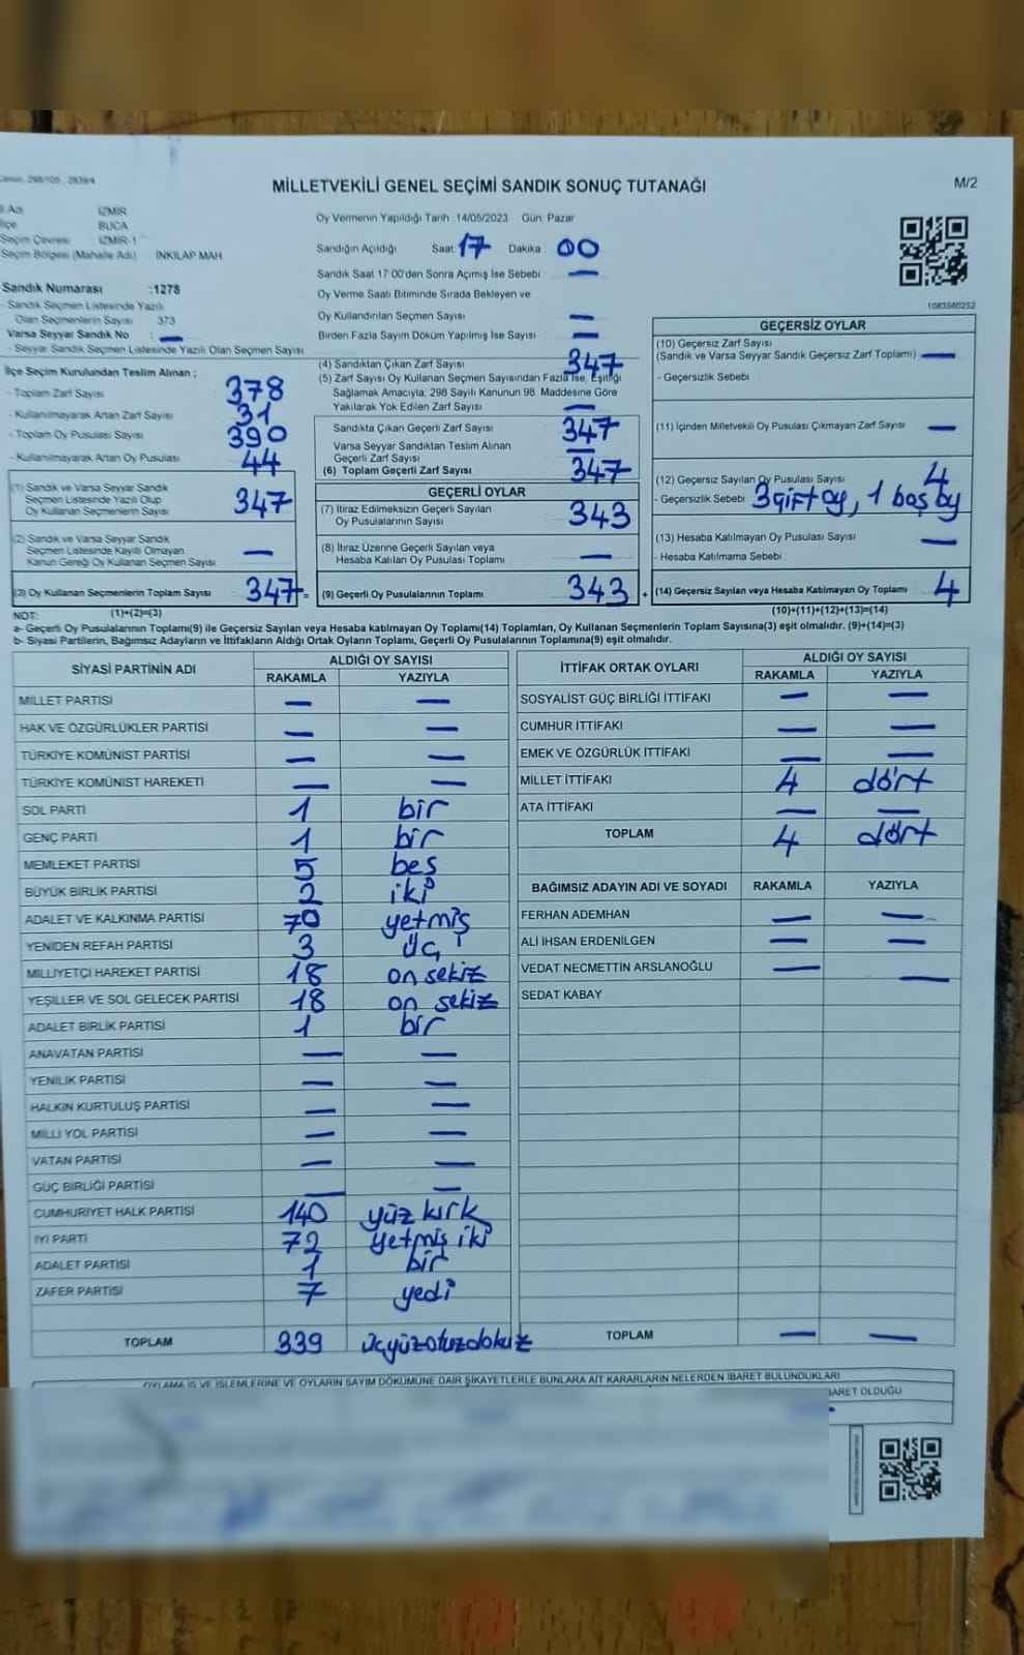 MİLLETVEKİLİ GENEL SEÇİMİ SANDIK SONUÇ TUTANAĞI
M/2
İZMİR
BUCA
Seçim Çevresi İZMİR-1
Seçim Bölgesi (Mahalle Adı) İNKILAP MAH
Sandık Numarası :1278
Sandık Seçmen Listesinde Yazılı
Olan Seçmenlerin Sayısı 373
Varsa Seyyar Sandık No : —
Seyyar Sandık Seçmen Listesinde Yazılı Olan Seçmen Sayısı
İlçe Seçim Kurulundan Teslim Alınan ;
- Toplam Zarf Sayısı 378
- Kullanılmayarak Artan Zarf Sayısı 31
- Toplam Oy Pusulası Sayısı 390
- Kullanılmayarak Artan Oy Pusulası 44
(1) Sandık ve Varsa Seyyar Sandık
Seçmen Listesinde Yazılı Olup
Oy Kullanan Seçmenlerin Sayısı 347
(2) Sandık ve Varsa Seyyar Sandık
Seçmen Listesinde Kayıtlı Olmayan
Kanun Gereği Oy Kullanan Seçmen Sayısı —
(3) Oy Kullanan Seçmenlerin Toplam Sayısı 347 =
(1)+(2)=(3)
Oy Vermenin Yapıldığı Tarih :14/05/2023 Gün: Pazar
Sandığın Açıldığı Saat 17 Dakika 00
Sandık Saat 17:00'den Sonra Açılmış İse Sebebi —
Oy Verme Saati Bitiminde Sırada Bekleyen ve
Oy Kullandırılan Seçmen Sayısı —
Birden Fazla Sayım Döküm Yapılmış İse Sayısı —
(4) Sandıktan Çıkan Zarf Sayısı 347
(5) Zarf Sayısı Oy Kullanan Seçmen Sayısından Fazla İse, Eşitliği
Sağlamak Amacıyla, 298 Sayılı Kanunun 98. Maddesine Göre
Yakılarak Yok Edilen Zarf Sayısı —
Sandıkta Çıkan Geçerli Zarf Sayısı 347
Varsa Seyyar Sandıktan Teslim Alınan
Geçerli Zarf Sayısı —
(6) Toplam Geçerli Zarf Sayısı 347
GEÇERLİ OYLAR
(7) İtiraz Edilmeksizin Geçerli Sayılan
Oy Pusulalarının Sayısı 343
(8) İtiraz Üzerine Geçerli Sayılan veya
Hesaba Katılan Oy Pusulası Toplamı —
(9) Geçerli Oy Pusulalarının Toplamı 343 +
1083580252
GEÇERSİZ OYLAR
(10) Geçersiz Zarf Sayısı
(Sandık ve Varsa Seyyar Sandık Geçersiz Zarf Toplamı) —
- Geçersizlik Sebebi :
(11) İçinden Milletvekili Oy Pusulası Çıkmayan Zarf Sayısı —
(12) Geçersiz Sayılan Oy Pusulası Sayısı 4
- Geçersizlik Sebebi 3 çift oy, 1 boş oy
(13) Hesaba Katılmayan Oy Pusulası Sayısı —
- Hesaba Katılmama Sebebi :
(14) Geçersiz Sayılan veya Hesaba Katılmayan Oy Toplamı 4
(10)+(11)+(12)+(13)=(14)
NOT:
a- Geçerli Oy Pusulalarının Toplamı(9) ile Geçersiz Sayılan veya Hesaba katılmayan Oy Toplamı(14) Toplamları, Oy Kullanan Seçmenlerin Toplam Sayısına(3) eşit olmalıdır. (9)+(14)=(3)
b- Siyasi Partilerin, Bağımsız Adayların ve İttifakların Aldığı Ortak Oyların Toplamı, Geçerli Oy Pusulalarının Toplamına(9) eşit olmalıdır.
SİYASİ PARTİNİN ADI ALDIĞI OY SAYISI
RAKAMLA YAZIYLA
MİLLET PARTİSİ — —
HAK VE ÖZGÜRLÜKLER PARTİSİ — —
TÜRKİYE KOMÜNİST PARTİSİ — —
TÜRKİYE KOMÜNİST HAREKETİ — —
SOL PARTİ 1 bir
GENÇ PARTİ 1 bir
MEMLEKET PARTİSİ 5 beş
BÜYÜK BİRLİK PARTİSİ 2 iki
ADALET VE KALKINMA PARTİSİ 70 yetmiş
YENİDEN REFAH PARTİSİ 3 üç
MİLLİYETÇİ HAREKET PARTİSİ 18 on sekiz
YEŞİLLER VE SOL GELECEK PARTİSİ 18 on sekiz
ADALET BİRLİK PARTİSİ 1 bir
ANAVATAN PARTİSİ — —
YENİLİK PARTİSİ — —
HALKIN KURTULUŞ PARTİSİ — —
MİLLİ YOL PARTİSİ — —
VATAN PARTİSİ — —
GÜÇ BİRLİĞİ PARTİSİ — —
CUMHURİYET HALK PARTİSİ 140 yüz kırk
İYİ PARTİ 72 yetmiş iki
ADALET PARTİSİ 1 bir
ZAFER PARTİSİ 7 yedi
TOPLAM 339 üçyüzotuzdokuz
İTTİFAK ORTAK OYLARI ALDIĞI OY SAYISI
RAKAMLA YAZIYLA
SOSYALİST GÜÇ BİRLİĞİ İTTİFAKI — —
CUMHUR İTTİFAKI — —
EMEK VE ÖZGÜRLÜK İTTİFAKI — —
MİLLET İTTİFAKI 4 dört
ATA İTTİFAKI — —
TOPLAM 4 dört
BAĞIMSIZ ADAYIN ADI VE SOYADI RAKAMLA YAZIYLA
FERHAN ADEMHAN — —
ALİ İHSAN ERDENİLGEN — —
VEDAT NECMETTİN ARSLANOĞLU — —
SEDAT KABAY
TOPLAM — —
OYLAMA İŞ VE İŞLEMLERİNE VE OYLARIN SAYIM DÖKÜMÜNE DAİR ŞİKAYETLERLE BUNLARA AİT KARARLARIN NELERDEN İBARET BULUNDUKLARI
OLDUĞU